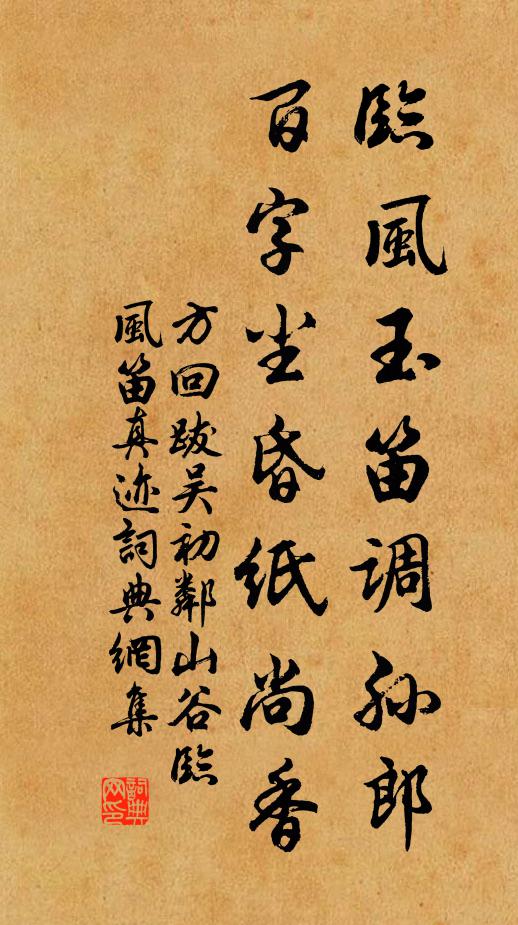 臨風玉笛調孙郎
百字尘昏纸尚香
方回跋吴初鄰山谷臨
風笛真迹詞典網集
詞典
网印